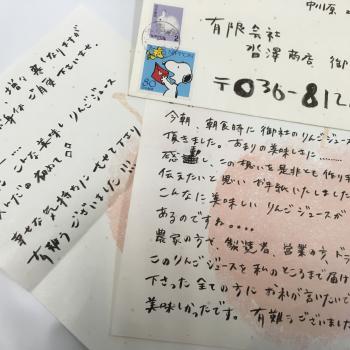 中川原
有限会社
沼澤商店 御
〒036-812
NIPPON
80
今朝、朝食時に御社のりんごジュース
頂きました。あまりの美味しさに……
感 し、この想いを是非とも作り手
伝えたいと思いお手紙いたしました
こんなに美味しいりんごジュースが
あるのですね。。。。
農家の方々、製造者、営業の方、ドラ
このりんごジュースを私のところまで届け
下さった全ての方にお礼が言いたいで
美味しかったです。有難うございまし
増々寒くなりますが
ご自愛下さいませ
こんな美味しいりんごジュース
初めて
幸せな気持ちにさせて下さり
有難うございました!!!